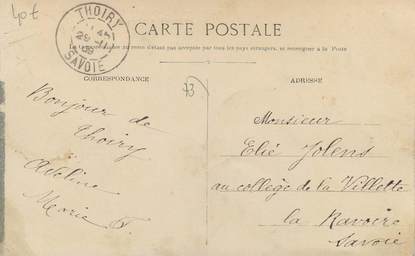 4pt
THOIRY
SAVOIE
CARTE POSTALE
La Correspondance au recto n'étant pas acceptée par tous les pays étrangers, se renseigner à la Poste
CORRESPONDANCE
ADRESSE
73
Bonjour de
Thoiry
Adeline
Marie F.
Monsieur
Elie Jolens
au collège de la Villette
la Ravoire
Savoie